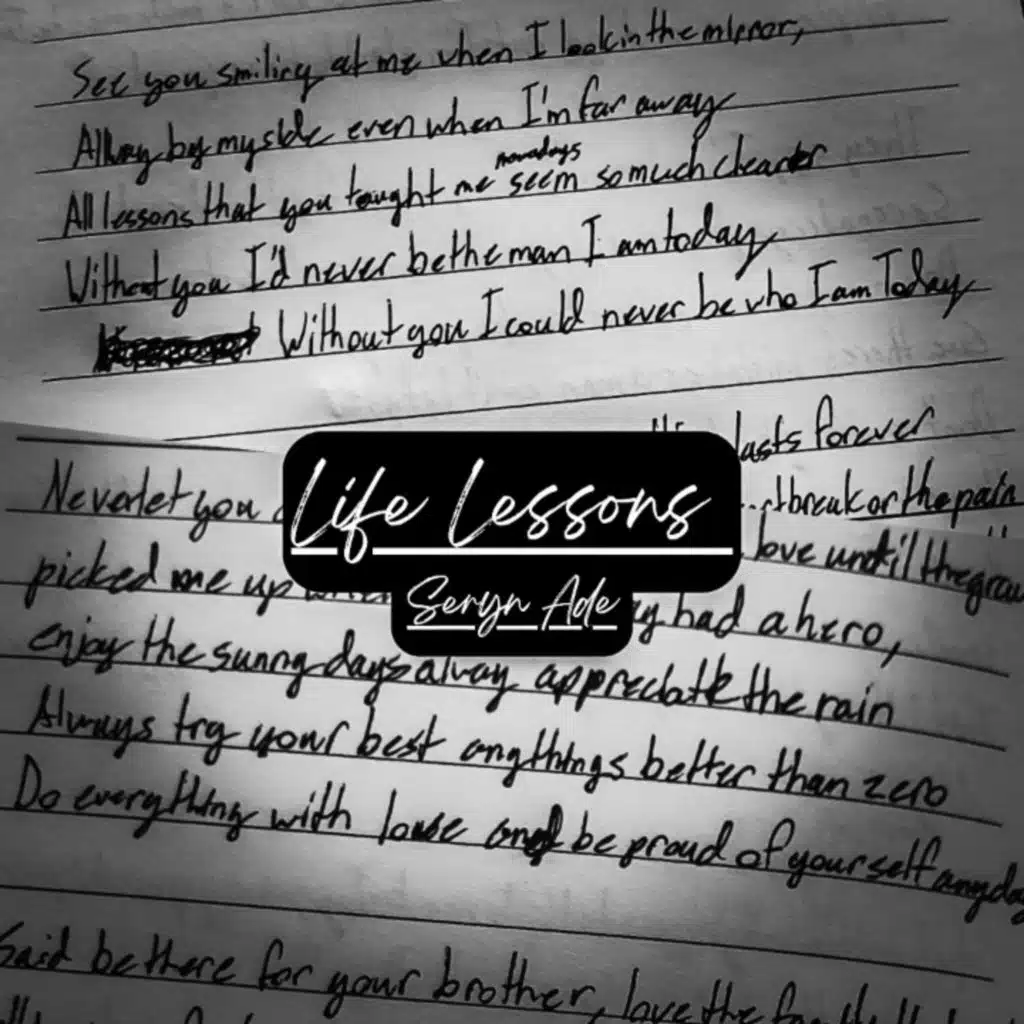 See you smiling at me when I look in the mirror,
Allway by my side even when I'm far away
nowadays
All lessons that you tought me seem so much clearer
Without you I'd never be the man I am today
Without you I could never be who I am Today
lasts forever
Never let you
break or the pain
Life Lessons
love until the
picked me up
had a hero,
Seryn Ade
enjoy the sunny days alway appreciate the rain
Always try your best anythings better than zero
Do everything with love and be proud of yourself
Said be there for your brother, love the